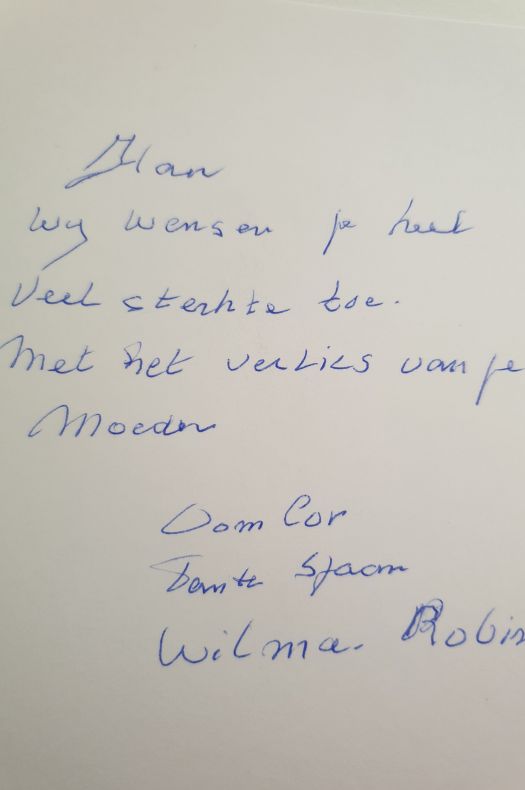 Han
Wij wensen je heel
Veel sterkte toe.
Met het verlies van je
Moeder
Oom Cor
Tante Sjaan
Wilma. Robin